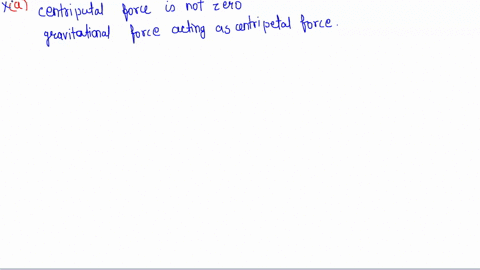 x(a) centriputal force is not zero
gravitational force acting as centripetal force.